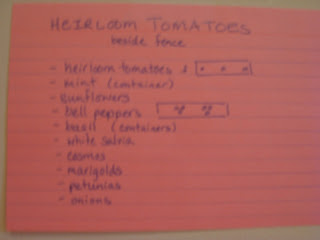 HEIRLOOM TOMATOES
beside fence
- heirloom tomatoes &
- mint (container)
- sunflowers
- bell peppers
- basil (containers)
- white salvia
- cosmos
- marigolds
- petunias
- onions